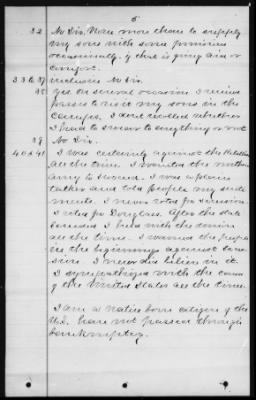 5
32 No Sir. None more than to supply
my sons with some provisions
occasionally, if that is giving aid or
comfort.
33 to 37 inclusive No Sir.
38 Yes on several occasion I received
passes to visit my sons in the
Camps. I dont recollect whether
I had to swear to anything or not
39 No Sir.
40 & 41 I was certainly against the Rebellion
all the time. I wanted the northern
army to succeed. I was a plain
talker and told people my senti
ments. I never voted for secession
I voted for Douglass. After the state
seceded I held with the union
all the time. I warned the people
in the beginning against Seces
sion. I never did believe in it.
I sympathized with the cause
of the United States all the time.
I am a native born citizen of the
U.S. have not passed through
bankruptcy.